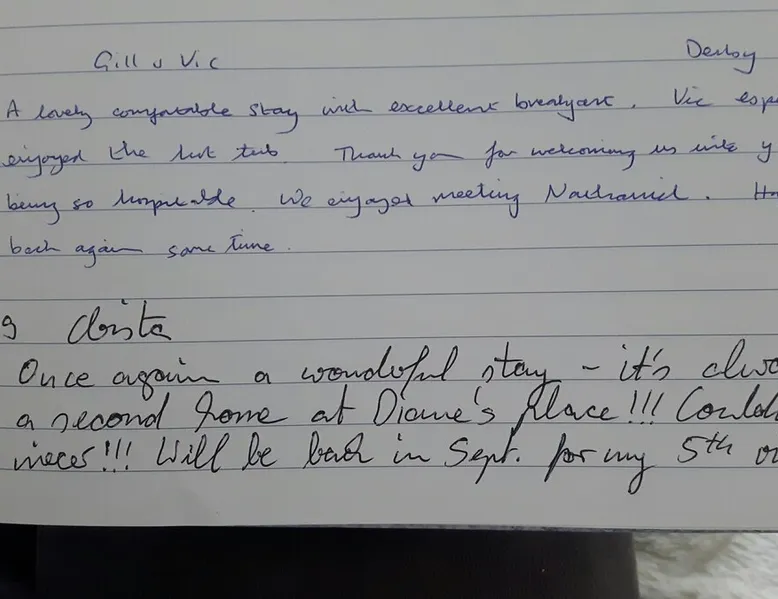 Gill & Vic Derby
A lovely comfortable stay with excellent breakfast. Vic espe
enjoyed the hot tub. Thank you for welcoming us into y
being so hospitable. We enjoyed meeting Nathaniel. Ho
back again some time.
9 Christa
Once again a wonderful stay - it's alwa
a second home at Diane's Place!!! Could
nicer!!! Will be back in Sept. for my 5th